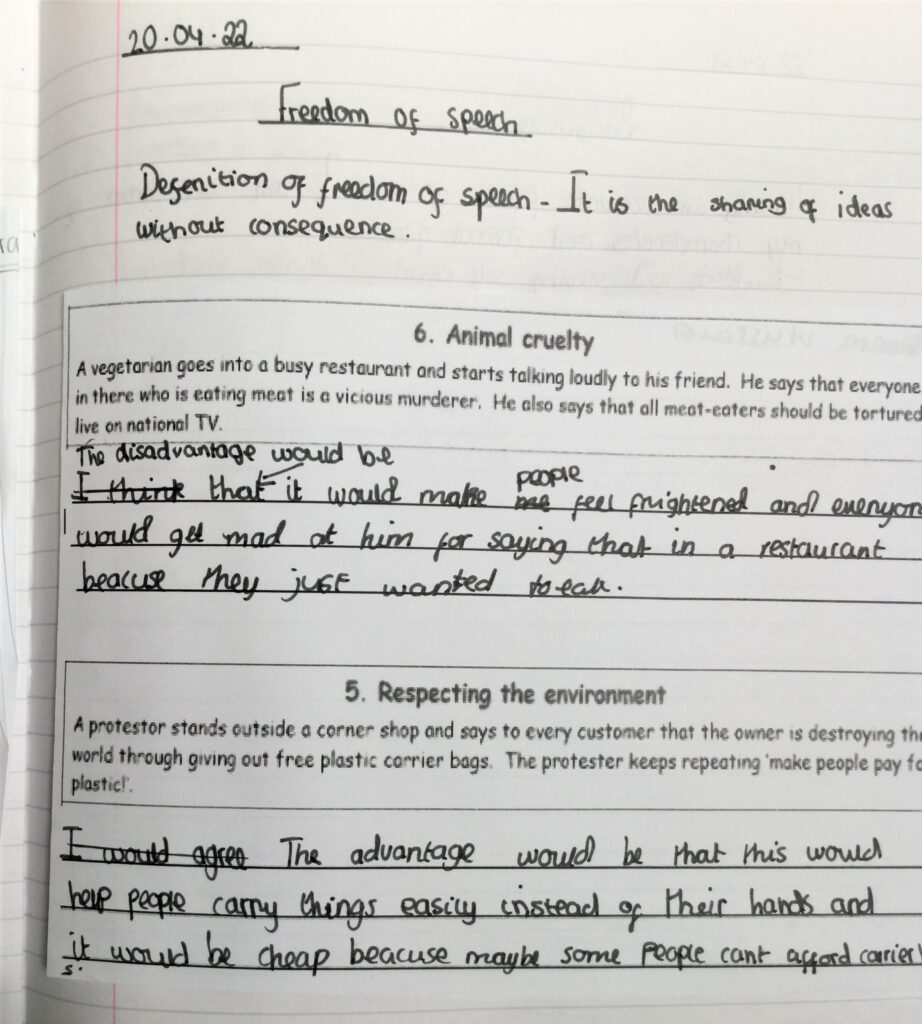 20.04.22
Freedom of speech
Defenition of freedom of speech - It is the sharing of ideas
without consequence.
6. Animal cruelty
A vegetarian goes into a busy restaurant and starts talking loudly to his friend. He says that everyone
in there who is eating meat is a vicious murderer. He also says that all meat-eaters should be tortured
live on national TV.
The disadvantage would be
people
I think that it would make me feel frightened and everyon
would get mad at him for saying that in a restaurant
beacuse they just wanted to eat.
5. Respecting the environment
A protestor stands outside a corner shop and says to every customer that the owner is destroying the
world through giving out free plastic carrier bags. The protester keeps repeating 'make people pay fo
plastic!'.
I would agree The advantage would be that this would
help people carry things easily instead of their hands and
it would be cheap beacuse maybe some people cant afford carrier
s.